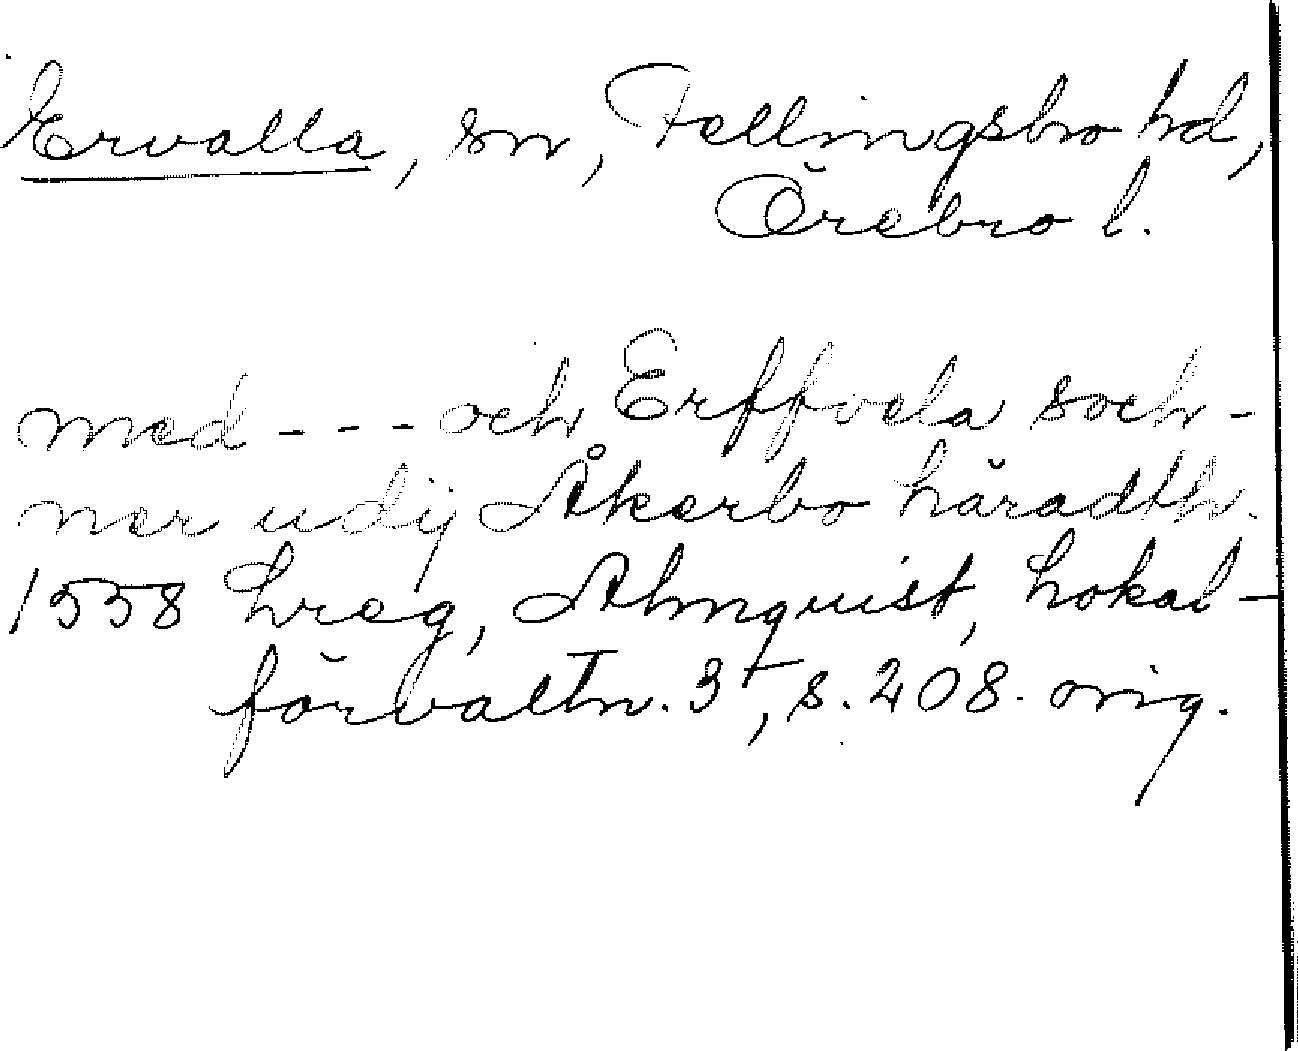 Ervalla, sn, Fellingsbro hd,
Örebro l.
med - - - och Erffvela soch-
ner udij Åkerbo häradth.
1558 hreg, Almquist, Lokal-
förvaltn. 3, s. 208. orig.